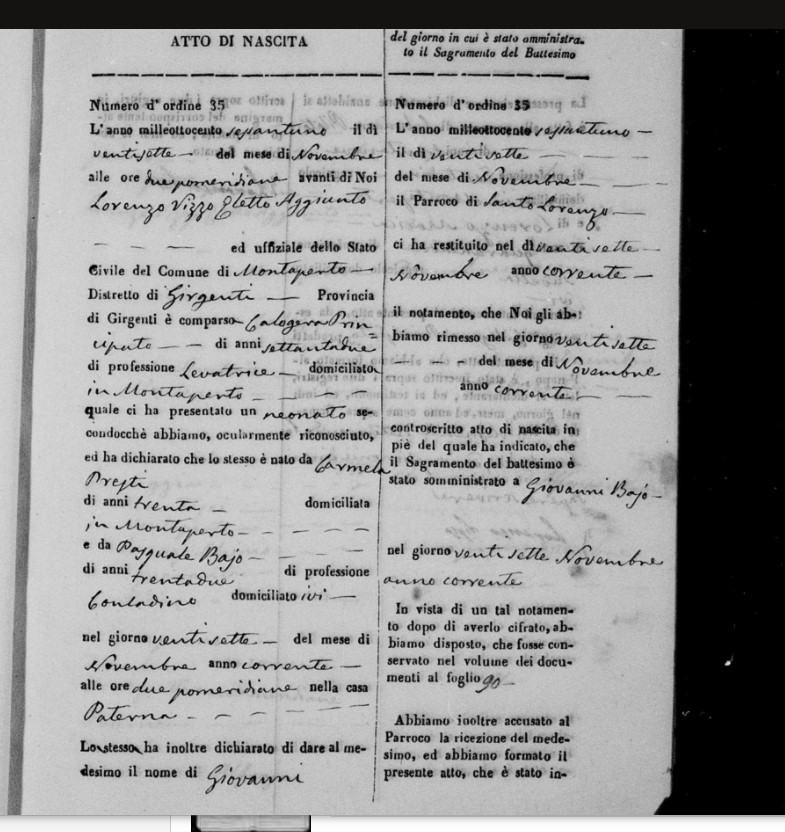 ATTO DI NASCITA
Numero d'ordine 35
L'anno milleottocento sessantuno il dì
ventisette del mese di Novembre
alle ore due pomeridiane avanti di Noi
Lorenzo Vizzo Eletto Aggiunto
ed uffiziale dello Stato
Civile del Comune di Montaperto
Distretto di Girgenti Provincia
di Girgenti è comparsa Calogera Prin
cipato di anni settantadue
di professione Levatrice domiciliata
in Montaperto
quale ci ha presentato un neonato se-
condocchè abbiamo, ocularmente riconosciuto,
ed ha dichiarato che lo stesso è nato da Carmela
Presti
di anni trenta domiciliata
in Montaperto
e da Pasquale Bajo
di anni trentadue di professione
Contadino domiciliato ivi
nel giorno ventisette del mese di
Novembre anno corrente
alle ore due pomeridiane nella casa
Paterna
Lo stesso ha inoltre dichiarato di dare al me-
desimo il nome di Giovanni
del giorno in cui è stato amministra-
to il Sagramento del Battesimo
Numero d'ordine 35
L'anno milleottocento sessantuno
il dì ventisette
del mese di Novembre
il Parroco di Santo Lorenzo
ci ha restituito nel dì ventisette
Novembre anno corrente
il notamento, che Noi gli ab-
biamo rimesso nel giorno ventisette
del mese di Novembre
anno corrente
controscritto atto di nascita in
piè del quale ha indicato, che
il Sagramento del battesimo è
stato somministrato a Giovanni Bajo
nel giorno ventisette Novembre
anno corrente
In vista di un tal notamen-
to dopo di averlo cifrato, ab-
biamo disposto, che fosse con-
servato nel volume dei docu-
menti al foglio 90
Abbiamo inoltre accusato al
Parroco la ricezione del mede-
simo, ed abbiamo formato il
presente atto, che è stato in-